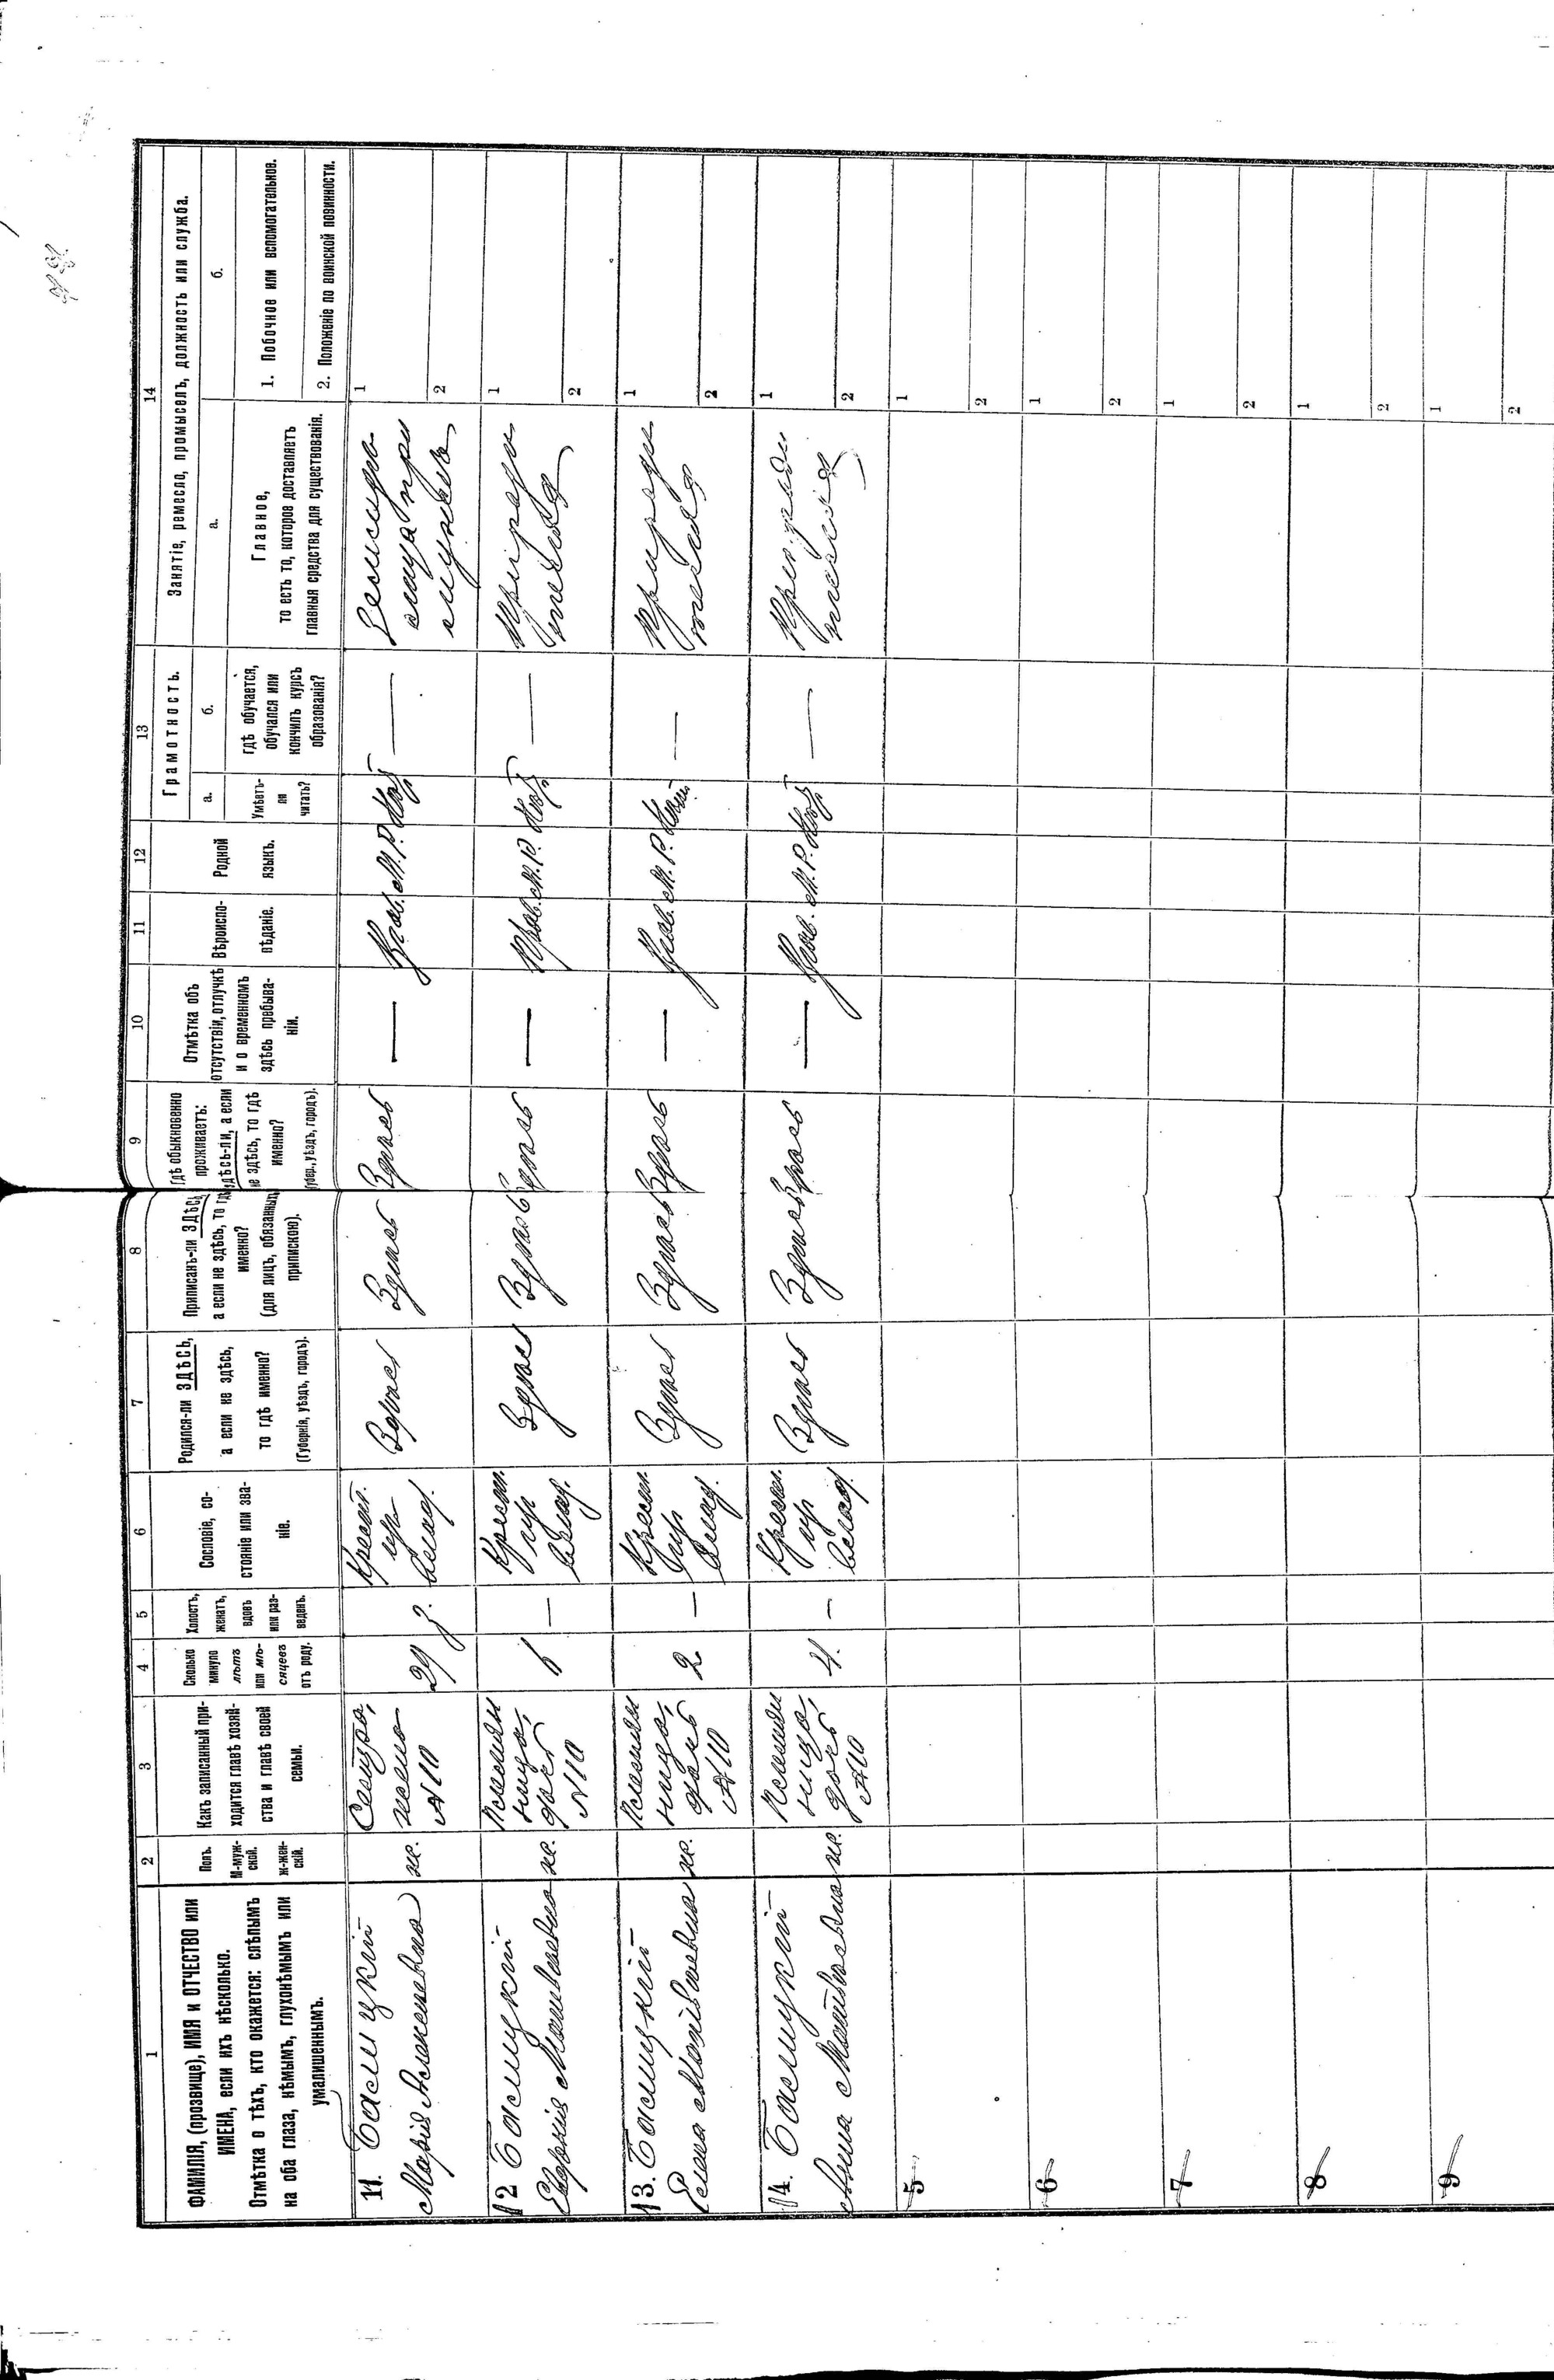 1
2
3
4
5
6
7
8
9
10
11
12
13
14
ФАМИЛІЯ, (прозвище), ИМЯ и ОТЧЕСТВО или
ИМЕНА, если ихъ нѣсколько.
Отмѣтка о тѣхъ, кто окажется: слѣпымъ
на оба глаза, нѣмымъ, глухонѣмымъ или
умалишеннымъ.
Полъ.
М-муж-
ской.
ж-жен-
скій.
Какъ записанный при-
ходится главѣ хозяй-
ства и главѣ своей
семьи.
Сколько
минуло
лѣтъ
или мѣ-
сяцевъ
отъ роду.
Холостъ,
женатъ,
вдовъ
или раз-
веденъ.
Сословіе, со-
стояніе или зва-
ніе.
Родился-ли ЗДѢСЬ,
а если не здѣсь,
то гдѣ именно?
(Губернія, уѣздъ, городъ).
Приписанъ-ли ЗДѢСЬ,
а если не здѣсь, то гдѣ
именно?
(для лицъ, обязанныхъ
припискою).
Гдѣ обыкновенно
проживаетъ:
здѣсь-ли, а если
не здѣсь, то гдѣ
именно?
(Губер., уѣздъ, городъ).
Отмѣтка объ
отсутствіи, отлучкѣ
и о временномъ
здѣсь пребыва-
ніи.
Вѣроиспо-
вѣданіе.
Родной
языкъ.
Грамотность.
а.
Умѣетъ-
ли
читать?
б.
гдѣ обучается,
обучался или
кончилъ курсъ
образованія?
Занятіе, ремесло, промыселъ, должность или служба.
а.
Главное,
то есть то, которое доставляетъ
главныя средства для существованія.
б.
1. Побочное или вспомогательное.
2. Положеніе по воинской повинности.
11. Басицкій
Марія Алексеевна
ж.
жена
№ 10
29
з.
Крест.
владѣл.
Здѣсь
Здѣсь
Здѣсь
—
Прав.
М. Р.
Нѣтъ
—
при
мужѣ
1
2
12 Басицкій
Евдокія Матвѣевна
ж.
Племян
ница,
дочь
№ 10
6
—
Крестъ.
Здѣсь
Здѣсь
Здѣсь
—
Прав.
М. Р.
Нѣтъ
—
При роди
теляхъ
1
2
13. Басицкій
Елена Матвѣевна
ж.
Племян
ница,
дочь
№ 10
2
—
Крестъ.
Здѣсь
Здѣсь
Здѣсь
—
Прав.
М. Р.
—
При роди
теляхъ
1
2
14. Басицкій
Анна Матвѣевна
ж.
Племян
ница,
дочь
№ 10
4.
—
Крестъ.
Здѣсь
Здѣсь
Здѣсь
—
Прав.
М. Р.
Нѣтъ
—
При роди
теляхъ
1
2
5
1
2
6
1
2
7
1
2
8
1
2
9
1
2